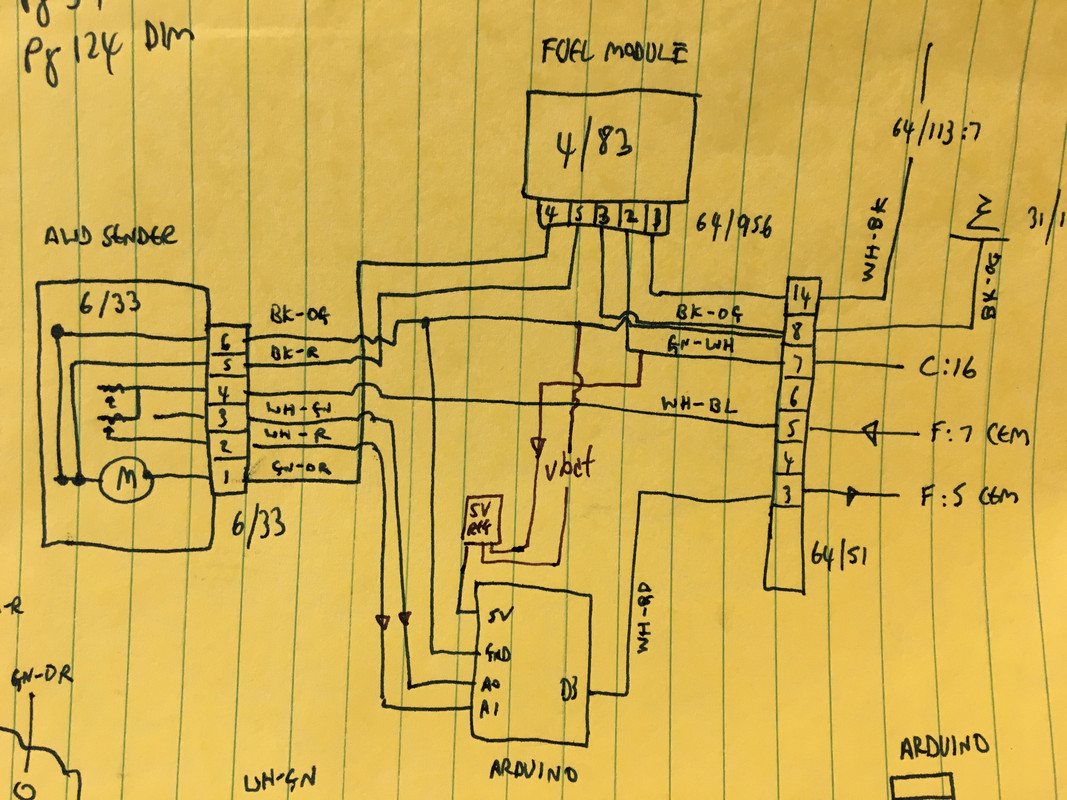 Pg 124 DIM
FUEL MODULE
4/83
4 5 3 2 1
64/956
64/113:7
WH-BK
31/1
BK-OG
AWD SENDER
6/33
6
5
4
3
2
1
BK-OG
BK-R
WH-GN
WH-R
GN-OR
M
6/33
BK-OG
GN-WH
WH-BL
14
8
7
6
5
4
3
C:16
F:7 CEM
F:5 CEM
64/51
vbat
5V
REG
5V
GND
A0
A1
D3
WH-RD
ARDUINO
-R
GN-OR
WH-GN
ARDUINO